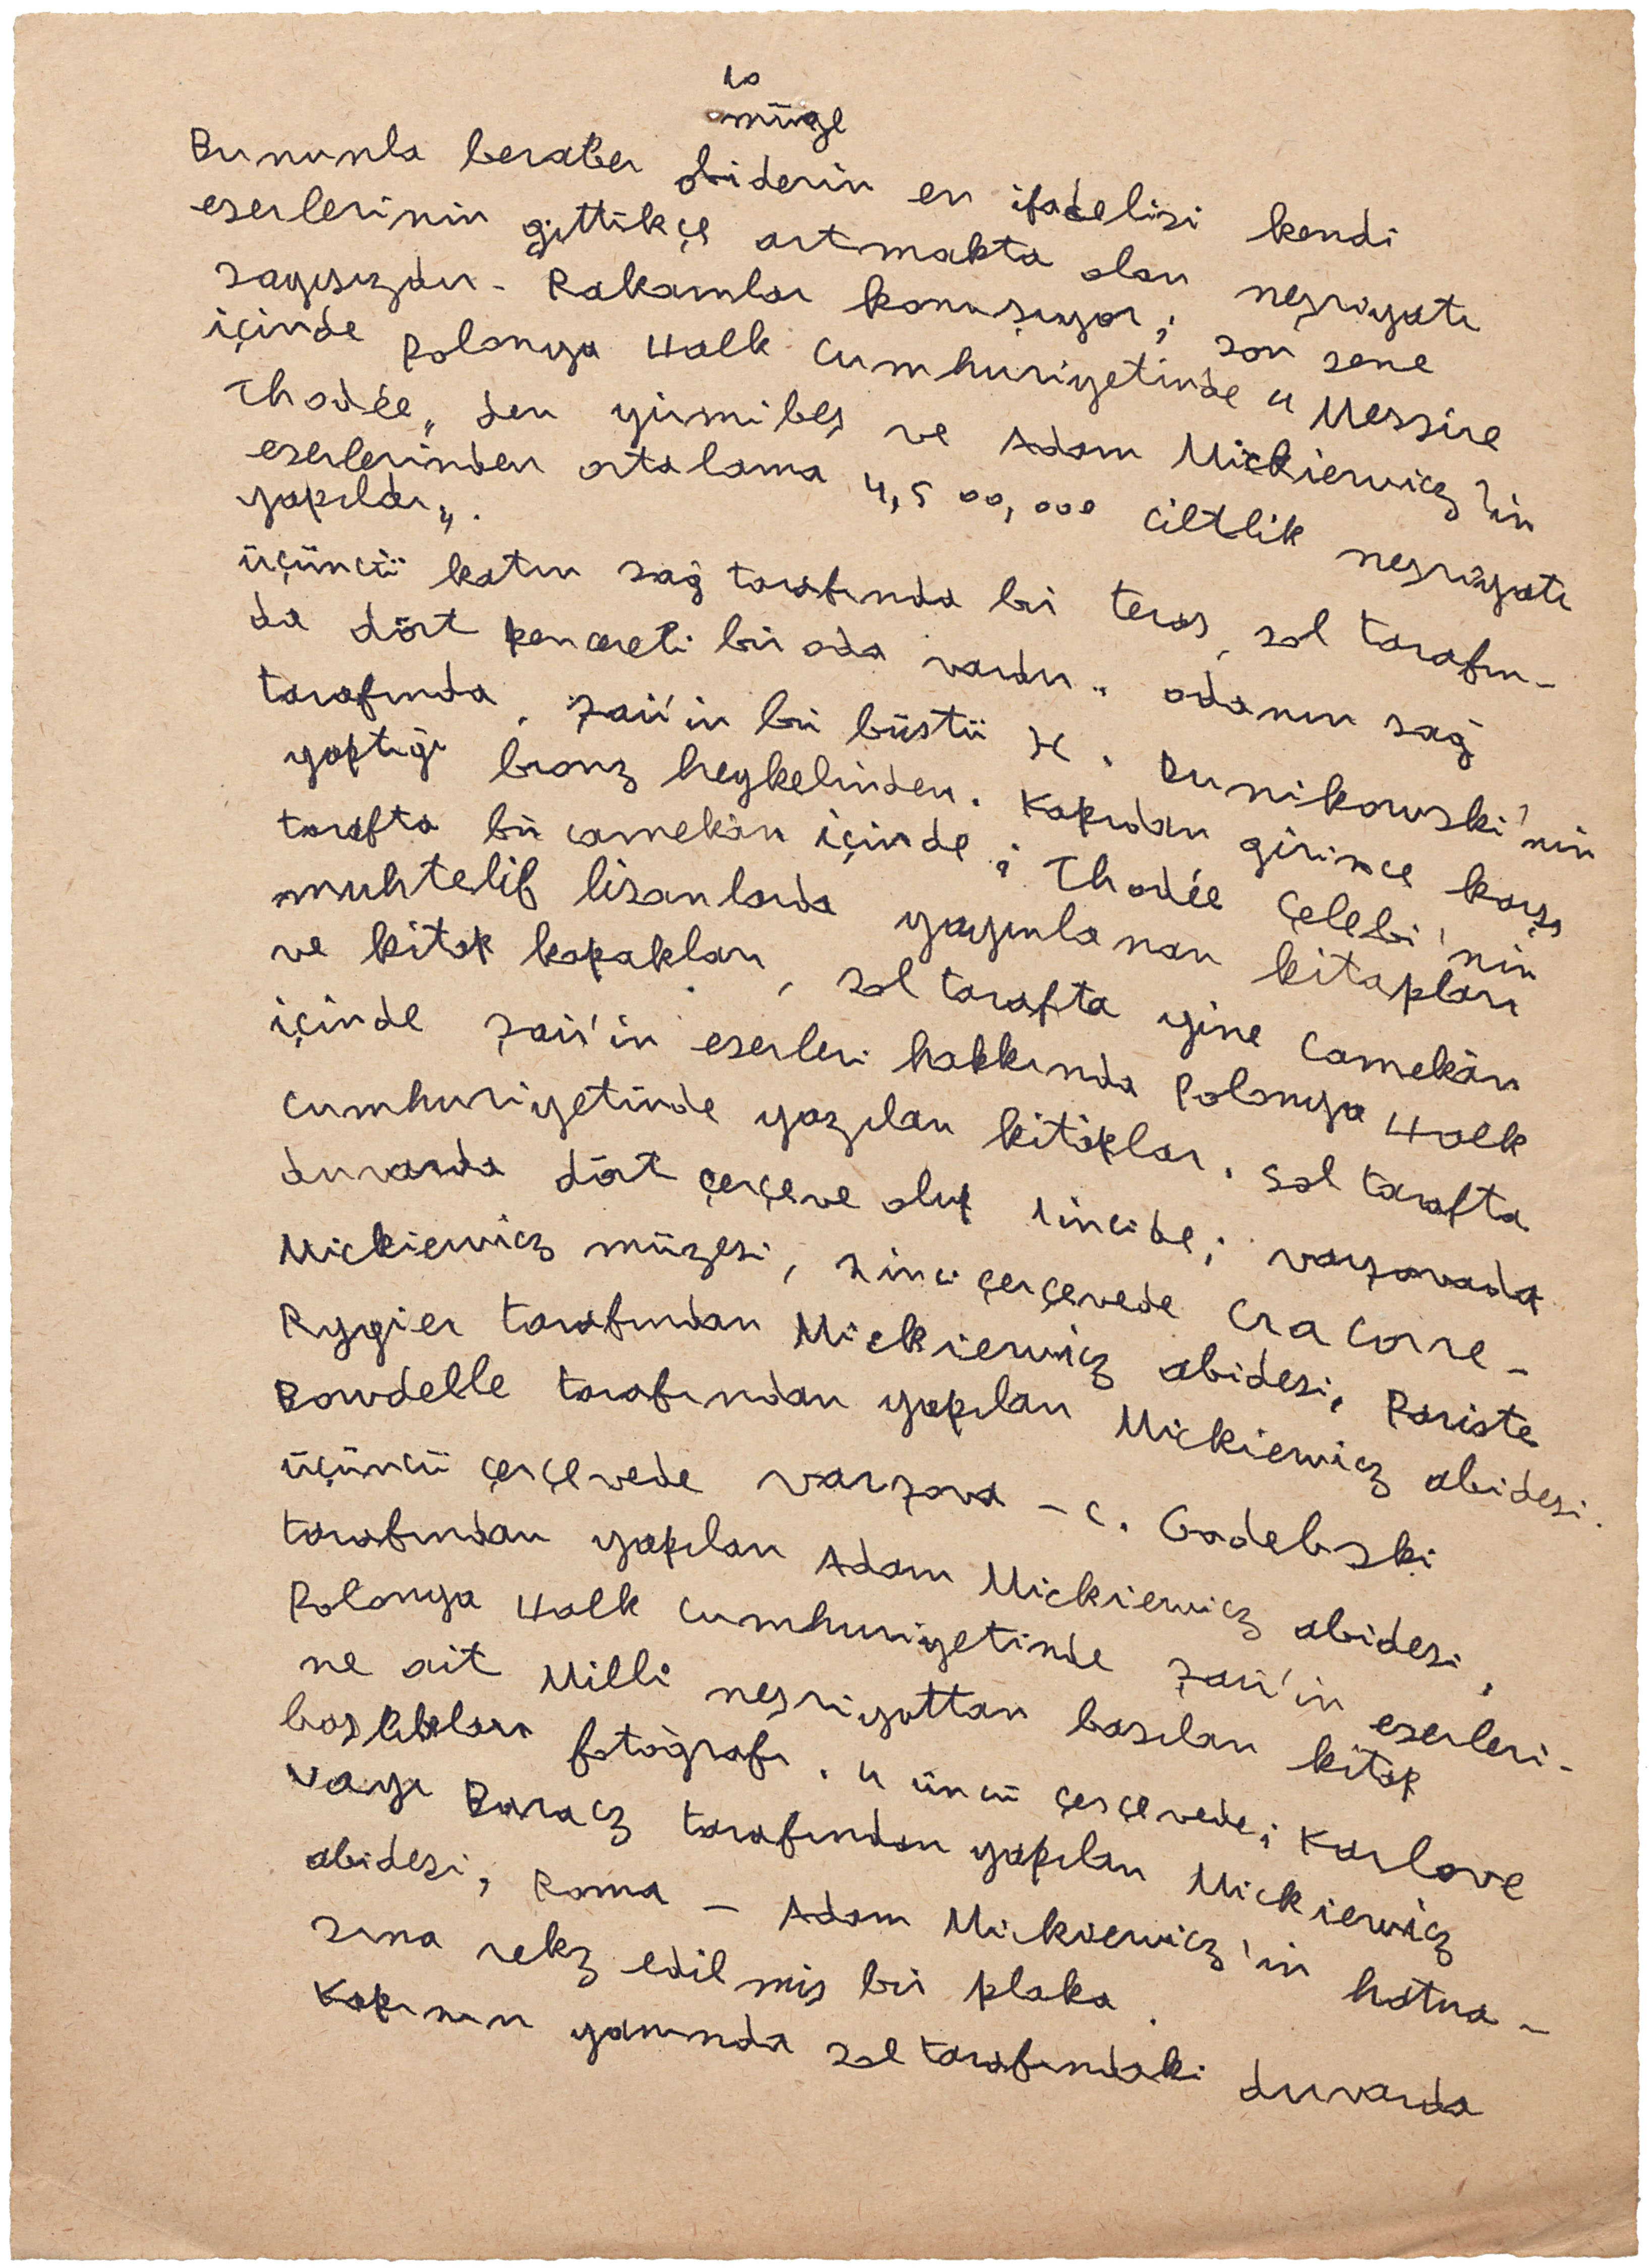 10
müze
Bununla beraber abiderin en ifadelisi kendi
eserlerinin gittikçe artmakta olan neşriyatı
sayısızdır - Rakamlar konuşuyor; son sene
içinde Polonya Halk Cumhuriyetinde "Messire
Thadée„ den yirmibeş ve Adam Mickiewicz'in
eserlerinden ortalama 4,500,000 ciltlik neşriyatı
yapıldı„.
üçüncü katın sağ tarafında bir teras, sol tarafın-
da dört pencereli bir oda vardır.. odanın sağ
tarafında, şair'in bir büstü X. Dunikowski'nin
yaptığı bronz heykelinden. Kapıdan girince karşı
tarafta bir camekân içinde; Thadée Çelebi'nin
muhtelif lisanlarda yayınlanan kitapları
ve kitap kapakları, sol tarafta yine camekân
içinde şair'in eserleri hakkında Polonya Halk
Cumhuriyetinde yazılan kitaplar. Sol tarafta
duvarda dört çerçeve olup 1incide; varşovada
Mickiewicz müzesi, 2inci çerçevede Cracovie -
Rygier tarafından Mickiewicz abidesi, Pariste
Bourdelle tarafından yapılan Mickiewicz abidesi.
üçüncü çerçevede varşova - C. Godebski
tarafından yapılan Adam Mickiewicz abidesi,
Polonya Halk Cumhuriyetinde şair'in eserleri-
ne ait Milli neşriyattan basılan kitap
başlıkları fotoğrafı. 4 üncü çerçevede; Karlove
Vary Baracz tarafından yapılan Mickiewicz
abidesi, Roma - Adam Mickiewicz'in hatıra-
sına rekz edilmiş bir plaka.
Kapının yanında sol tarafındaki duvarda